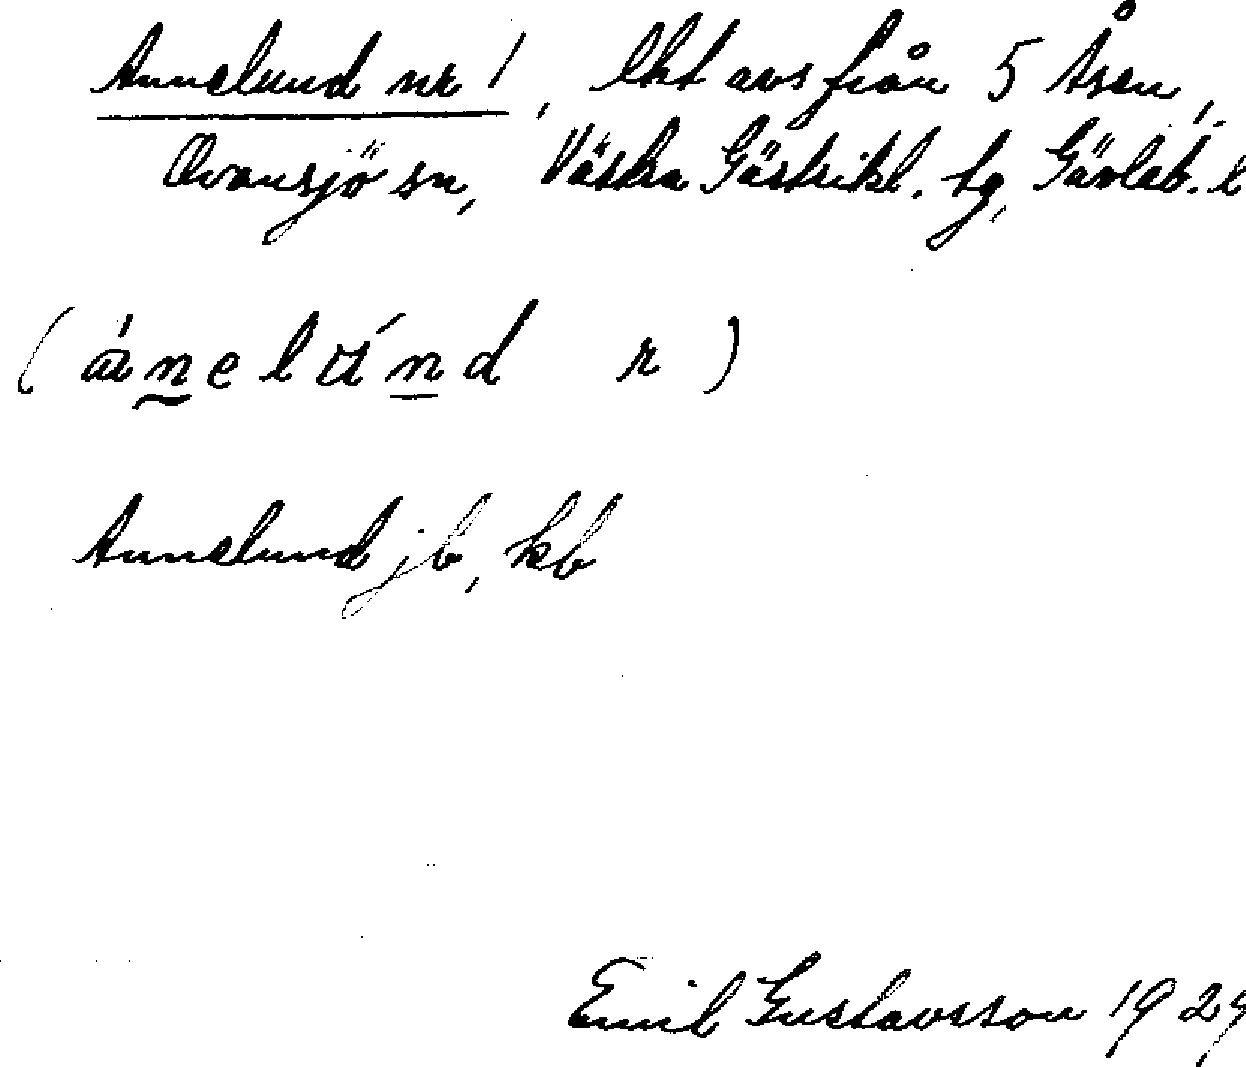 Annelund nr 1, lht avs från 5 Åsen,
Ovansjö sn, Västra Gästrikl. tg, Gävleb. l
(ánelúnd r)
Annelund jb, kb
Emil Gustavsson 1929